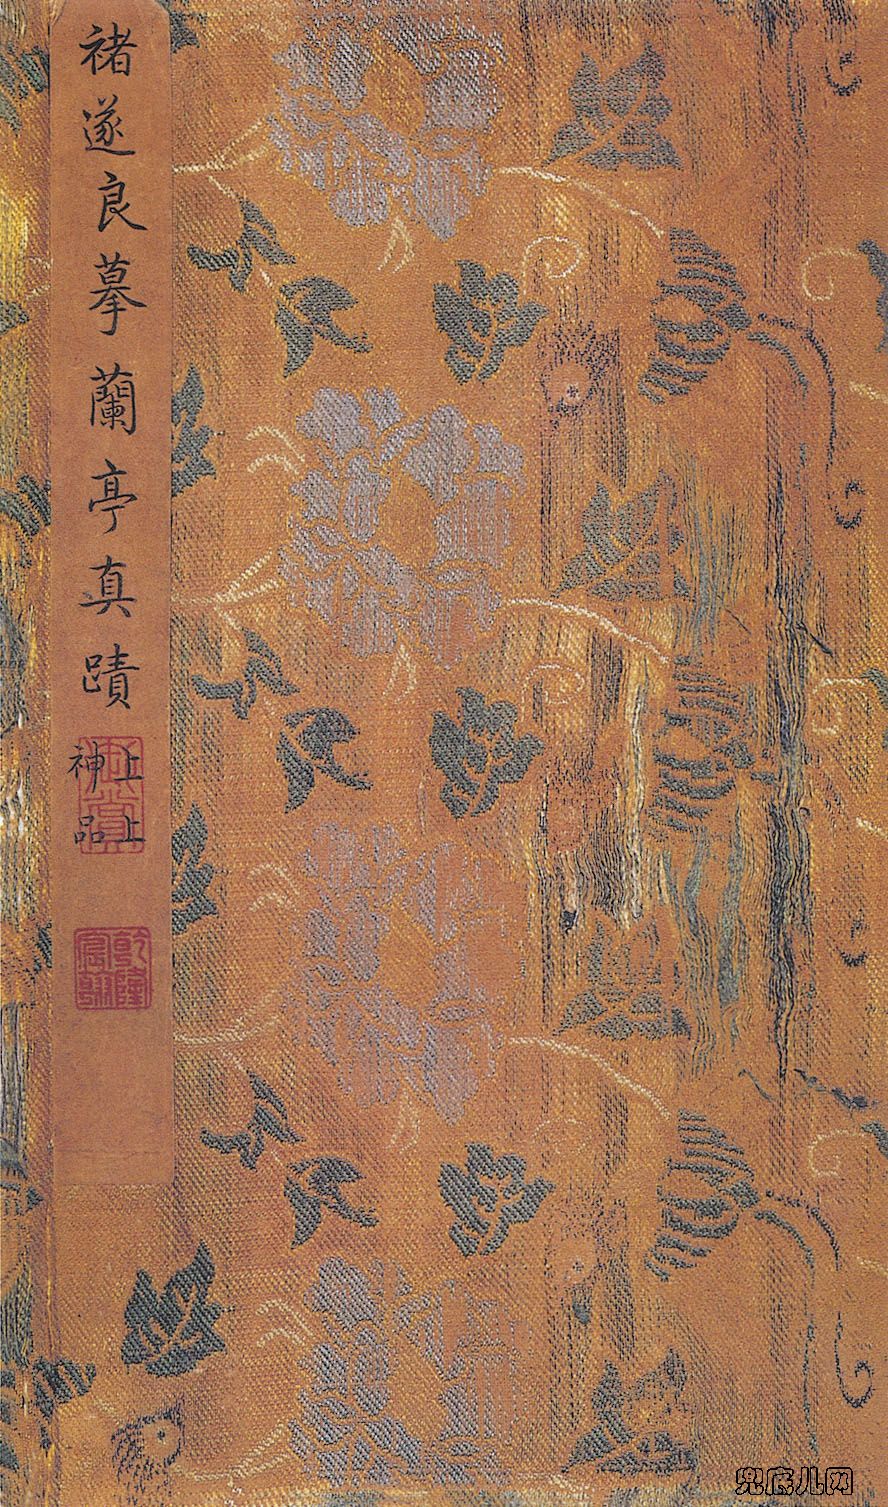 褚遂良摹蘭亭真蹟
上上
神品
乾隆
宸翰
兜底儿网